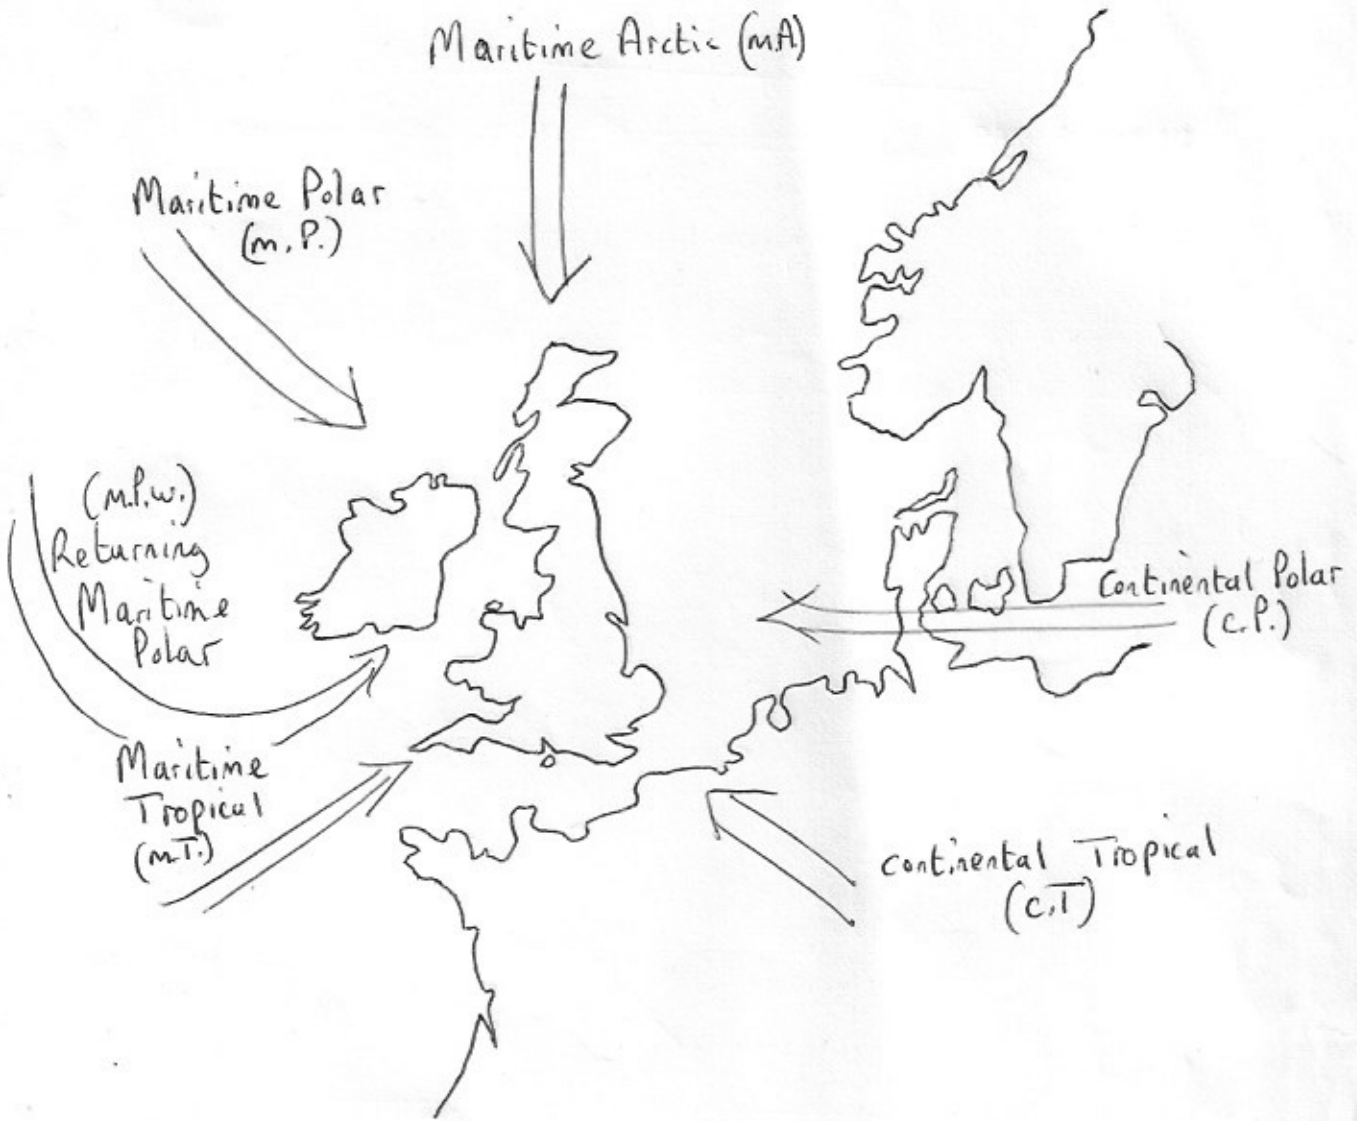 Maritime Arctic (mA)
Maritime Polar
(m.P.)
(m.P.w.)
Returning
Maritime
Polar
Continental Polar
(c.P.)
Maritime
Tropical
(m.T.)
Continental Tropical
(c.T)